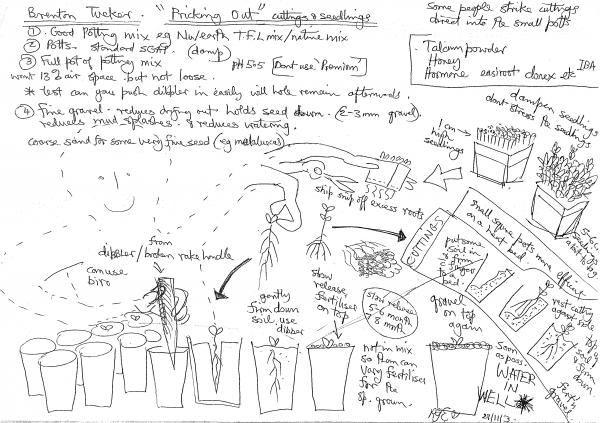 Brenton Tucker. "Pricking Out" cuttings & seedlings
① Good Potting mix eg Nu/earth T.F.L mix/native mix
② Potts - standard SGAP. (damp)
③ Full pot of potting mix
PH 5.05
Dont use "Premium"
want 13% air space but not loose.
* test can you push dibbler in easily will hole remain afterwards.
④ Fine gravel - reduces drying out holds seed down. (2-3mm gravel)
reduces mud splashes & reduces watering.
coarse sand for some very fine seed (eg melaleucas)
Some people strike cuttings
direct into the small potts
Talcum powder
Honey
Hormone easiroot clonex etc IBA
dampen seedlings
dont stress the seedlings
1cm high seedlings
snip snip off excess roots
CUTTINGS
small square pots more efficient
on a heat bed
put some
soil in
& firm
to a
bed.
rest cutting
against side
gravel on
top
again
from
dibbler/broken rake handle
can use
biro
gently
firm down
soil, use
dibber
slow
release
fertiliser
on top
slow release
5-6 month
not in mix
so than can
vary fertiliser
for the
sp. grown.
soon
as poss.
WATER
IN
WELL